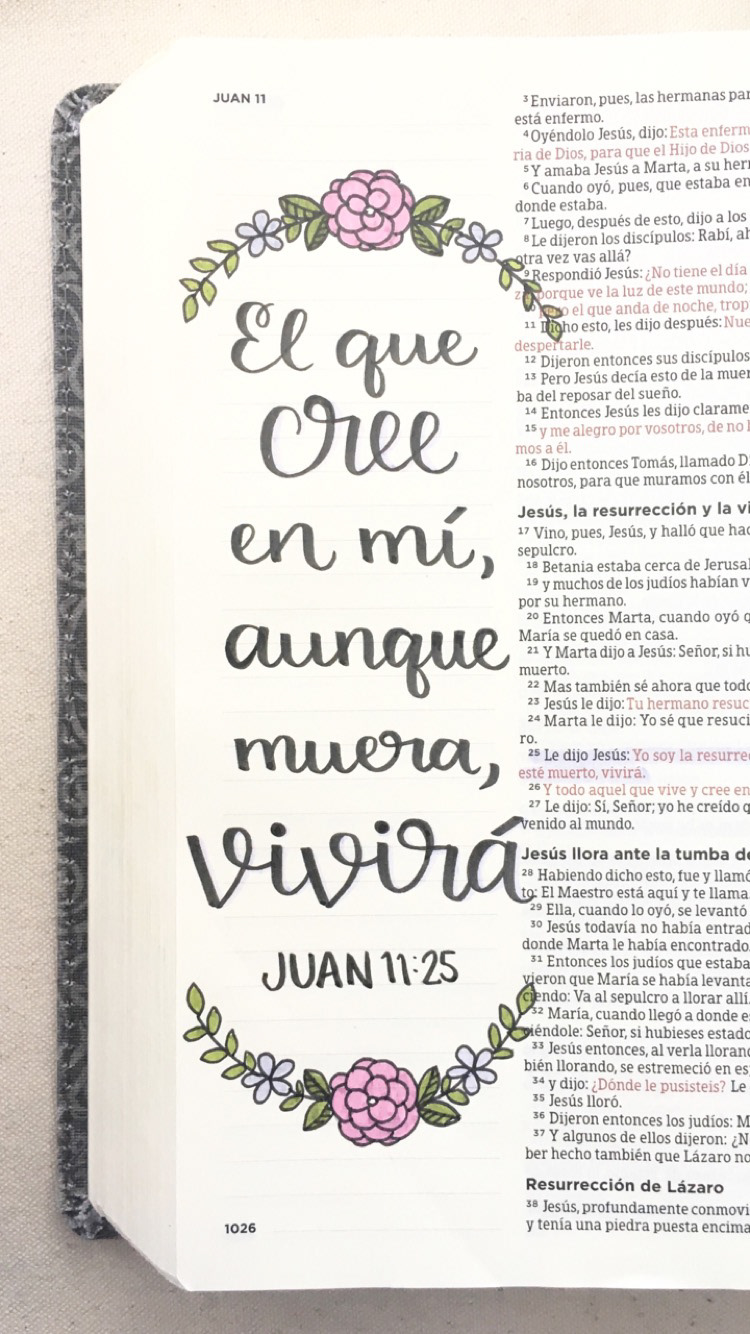 JUAN 11
El que
cree
en mí,
aunque
muera,
vivirá
JUAN 11:25
1026
3 Enviaron, pues, las hermanas
está enfermo.
4 Oyéndolo Jesús, dijo: Esta
ria de Dios, para que el Hijo de Dios
5 Y amaba Jesús a Marta, a su
6 Cuando oyó, pues, que estaba
donde estaba.
7 Luego, después de esto, dijo a los
8 Le dijeron los discípulos: Rabí,
otra vez vas allá?
9 Respondió Jesús: ¿No tiene el día
porque ve la luz de este mundo;
pero el que anda de noche,
11 Dicho esto, les dijo después:
despertarle.
12 Dijeron entonces sus discípulos
13 Pero Jesús decía esto de la
ba del reposar del sueño.
14 Entonces Jesús les dijo
15 y me alegro por vosotros, de no
mos a él.
16 Dijo entonces Tomás, llamado
nosotros, para que muramos con él
Jesús, la resurrección y la
17 Vino, pues, Jesús, y halló que
sepulcro.
18 Betania estaba cerca de
19 y muchos de los judíos habían
por su hermano.
20 Entonces Marta, cuando oyó
María se quedó en casa.
21 Y Marta dijo a Jesús: Señor, si
muerto.
22 Mas también sé ahora que
23 Jesús le dijo: Tu hermano
24 Marta le dijo: Yo sé que
ro.
25 Le dijo Jesús: Yo soy la
esté muerto, vivirá.
26 Y todo aquel que vive y cree en
27 Le dijo: Sí, Señor; yo he creído
venido al mundo.
Jesús llora ante la tumba
28 Habiendo dicho esto, fue y llamó
to: El Maestro está aquí y te llama.
29 Ella, cuando lo oyó, se levantó
30 Jesús todavía no había
donde Marta le había encontrado.
31 Entonces los judíos que
vieron que María se había
ciendo: Va al sepulcro a llorar allí.
32 María, cuando llegó a donde
viéndole: Señor, si hubieses
33 Jesús entonces, al verla
bién llorando, se estremeció en
34 y dijo: ¿Dónde le pusisteis? Le
35 Jesús lloró.
36 Dijeron entonces los judíos:
37 Y algunos de ellos dijeron:
ber hecho también que Lázaro
Resurrección de Lázaro
38 Jesús, profundamente
y tenía una piedra puesta encima